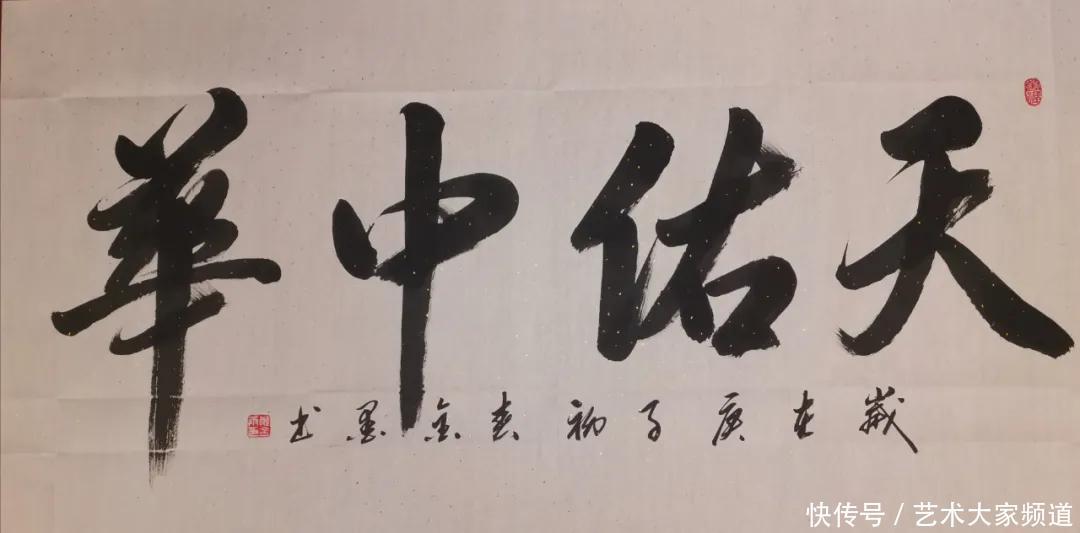 天佑中華
歲在庚子初春金墨书
快传号/艺术大家频道